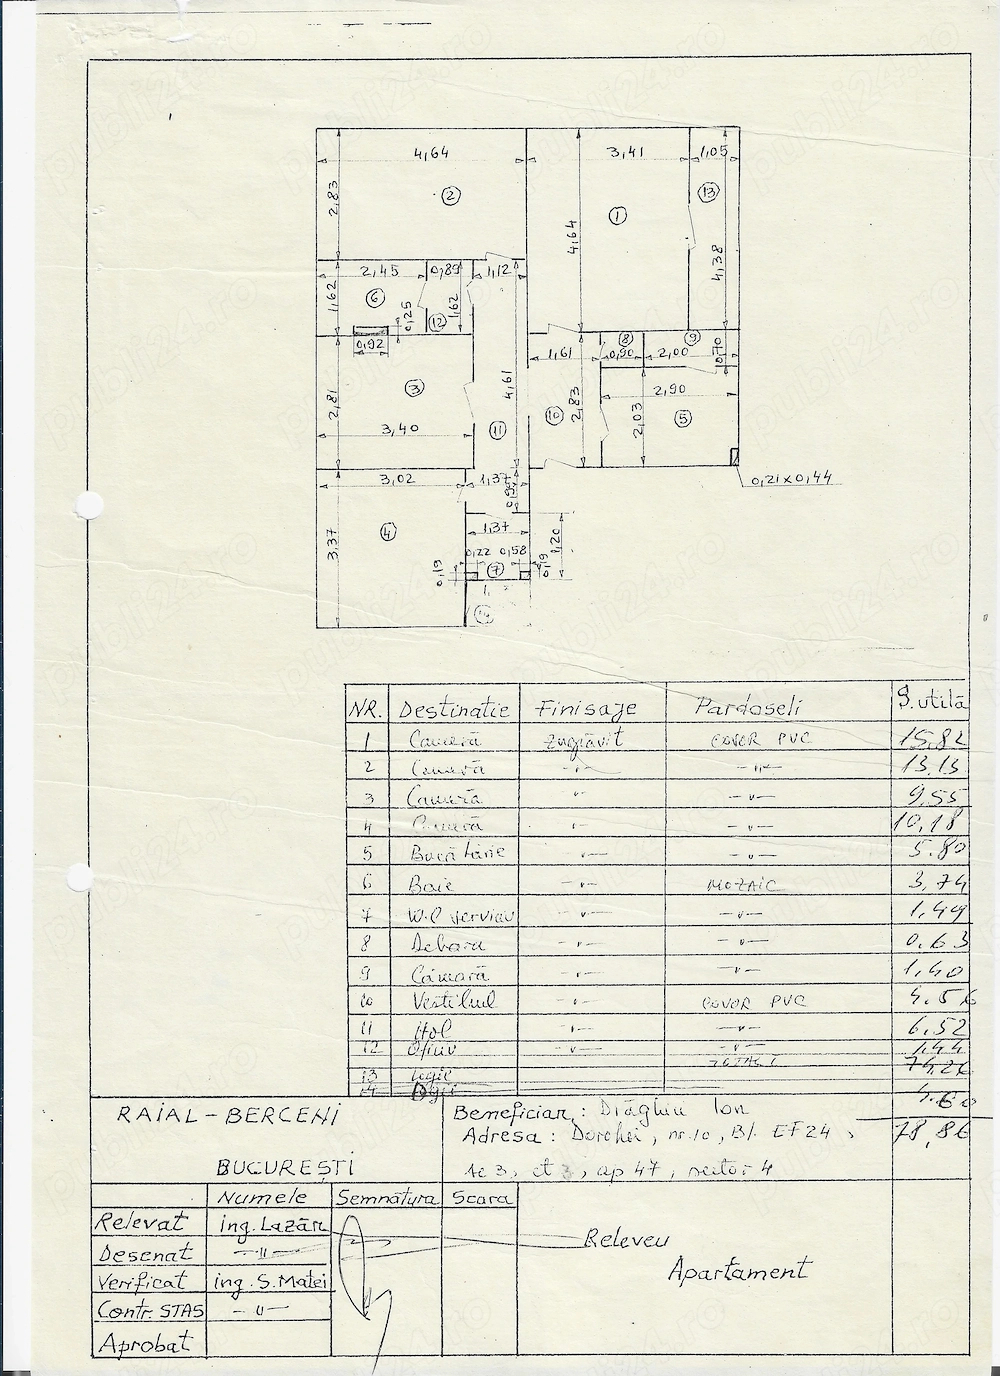 4,64
3,41
1,05
2,83
2
1
13
4,64
4,38
2,45
0,89
1,12
1,62
6
0,25
12
1,62
0,92
8
9
1,61
0,90
2,00
0,70
2,81
3
4,61
10
2,83
2,90
2,03
5
3,40
11
3,02
1,37
0,21x0,44
3,37
4
1,37
1,20
0,22
0,58
0,19
7
0,19
NR. Destinatie Finisaje Pardoseli S.utilă
1 Cameră zugrăvit COVOR PVC 15,82
2 Cameră -"- -"- 13,13
3 Cameră -"- -"- 9,55
4 Cameră -"- -"- 10,18
5 Bucătărie -"- -"- 5.80
6 Baie -"- MOZAIC 3,74
7 W.C serviciu -"- -"- 1,49
8 Debara -"- -"- 0,63
9 Cămară -"- -"- 1,40
10 Vestibul -"- COVOR PVC 4.56
11 Hol -"- -"- 6,52
12 Oficiu -"- -"- 1,44
TOTAL I 74,26
13 Logie
14 4.60
78,86
RAIAL-BERCENI
BUCUREȘTI
Beneficiar: Drăghiu Ion
Adresa: Dorohei, nr.10, Bl. EF24,
sc 3, et 3, ap 47, sector 4
Numele Semnătura Scara
Relevat ing. Lazăr
Desenat -"-
Verificat ing. S. Matei
Contr. STAS -"-
Aprobat
Releveu
Apartament